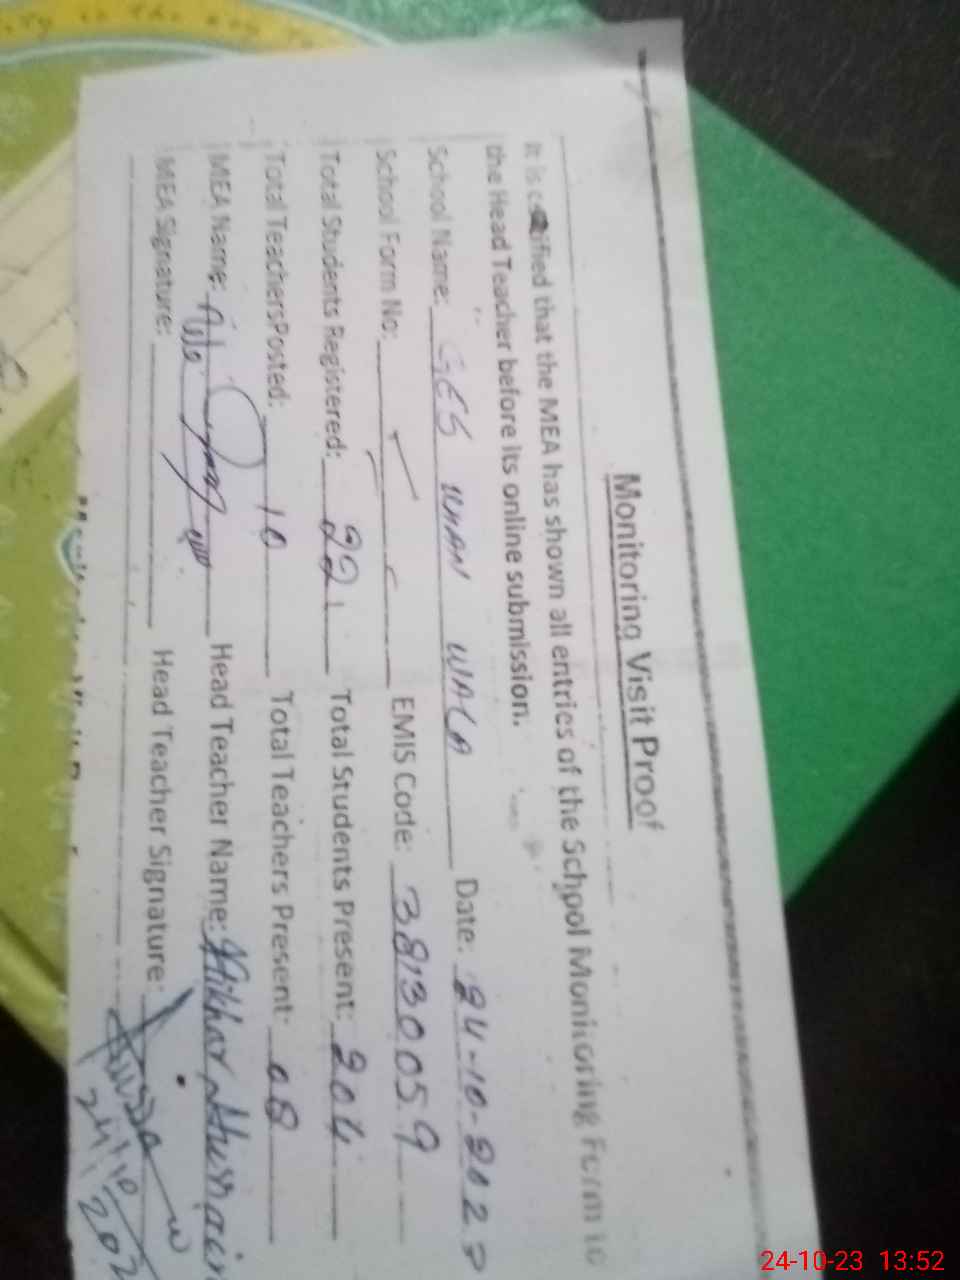 Monitoring Visit Proof
It is certified that the MEA has shown all entries of the School Monitoring Form to
the Head Teacher before its online submission.
School Name: GES WHAN WALA Date: 24-10-2023
School Form No: EMIS Code: 38130059
Total Students Registered: 221 Total Students Present: 204
Total TeachersPosted: 10 Total Teachers Present: 08
MEA Name: Head Teacher Name: Iftikhar Hussain
MEA Signature: Head Teacher Signature:
24/10/202
24-10-23 13:52